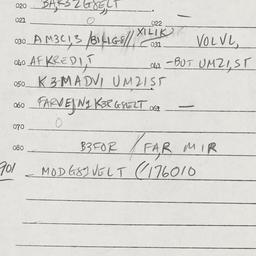 020 BAKSZGSELT
021 0 022 —
030 AM3CI,3 /BILIGE// XILIK 031 VOLVL,
040 AFKREDI,T 041 -BUT UMZI,ST
050 K3MADVI UMZIST
060 FARVEJNIK3RGSELT 061 —
070 0
080 B3FOR / FA,R MIR
901 — MODGSIVELT (/176010